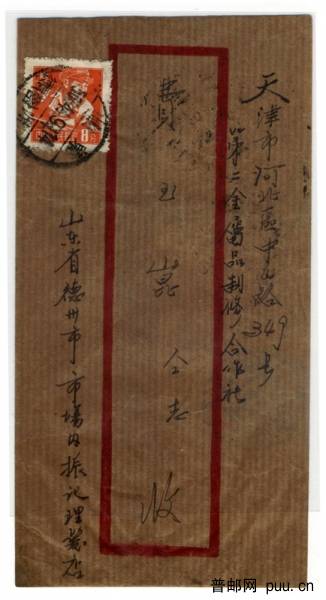 天津市河北區中山路349号
第二金屬品制修合作社
黄玉崑仝志
收
山东省德州市市場内振记理髮店
8
普邮网 puu.cn